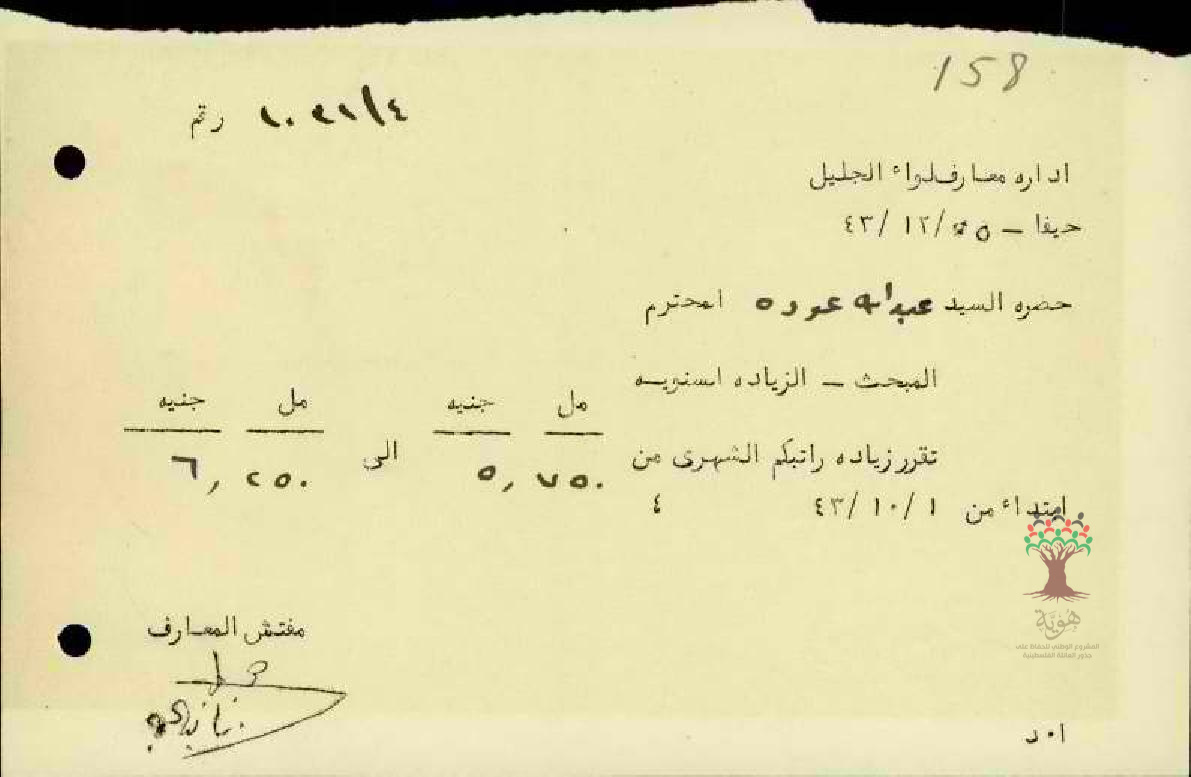 158
رقم ١٠٣١/٤
اداره معارف لواء الجليل
حيفا – ٢٥/ ١٢ /٤٣
حضره السيد عبدالله عوده المحترم
المبحث – الزياده السنويه
مل جنيه مل جنيه
تقرر زياده راتبكم الشهرى من ٥,٧٥٠ الى ٦,٢٥٠
ابتداء من ١/ ١٠ /٤٣ ٤
هُوِيَّة
المشروع الوطني للحفاظ على
جذور العائلة الفلسطينية
مفتش المعارف
ا٠د